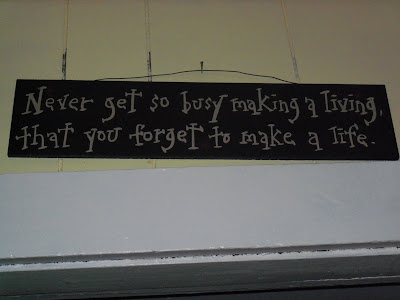 Never get so busy making a living,
that you forget to make a life.